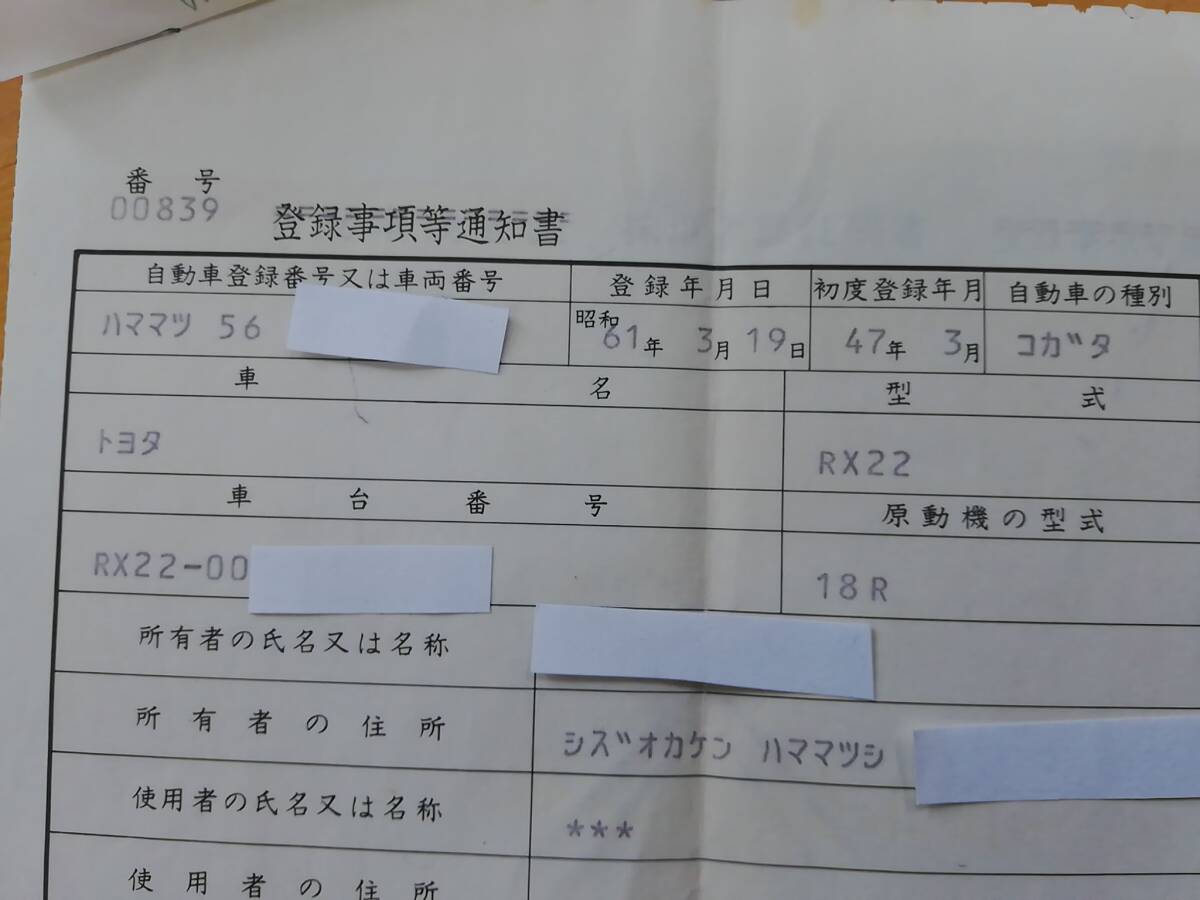 番号
00839
登録事項等通知書
自動車登録番号又は車両番号 登録年月日 初度登録年月 自動車の種別
ハママツ 56 昭和 61年 3月 19日 47年 3月 コガタ
車名 型式
トヨタ RX22
車台番号 原動機の型式
RX22-00 18R
所有者の氏名又は名称
所有者の住所 シズオカケン ハママツシ
使用者の氏名又は名称 ***
使用者の住所